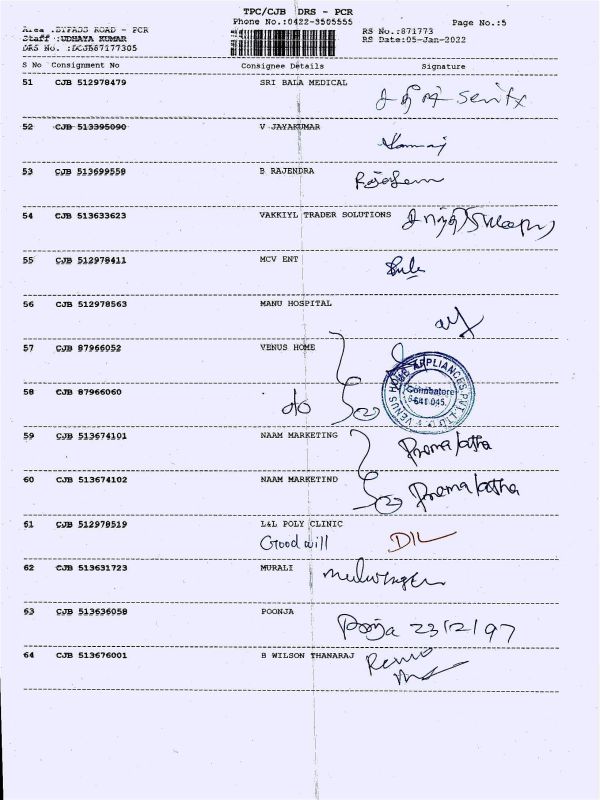 TPC/CJB DRS - PCR
Phone No.:0422-3505555
Page No.:5
Area :BYPASS ROAD - PCR
Staff :UDHAYA KUMAR
DRS No. :DCJB87177305
RS No.:871773
RS Date:05-Jan-2022
S No Consignment No Consignee Details Signature
51 CJB 512978479 SRI BALA MEDICAL
52 CJB 513395090 V JAYAKUMAR
53 CJB 513699559 B RAJENDRA
54 CJB 513633623 VAKKIYL TRADER SOLUTIONS
55 CJB 512978411 MCV ENT
56 CJB 512978563 MANU HOSPITAL
57 CJB 87966052 VENUS HOME
VENUS HOME APPLIANCES PVT. LTD
Coimbatore
641 045
58 CJB 87966060 do
59 CJB 513674101 NAAM MARKETING Premalatha
60 CJB 513674102 NAAM MARKETIND Premalatha
61 CJB 512978519 L&L POLY CLINIC
Good will DIL
62 CJB 513631723 MURALI
63 CJB 513636058 POONJA
Pooja 23/2/97
64 CJB 513676001 B WILSON THANARAJ